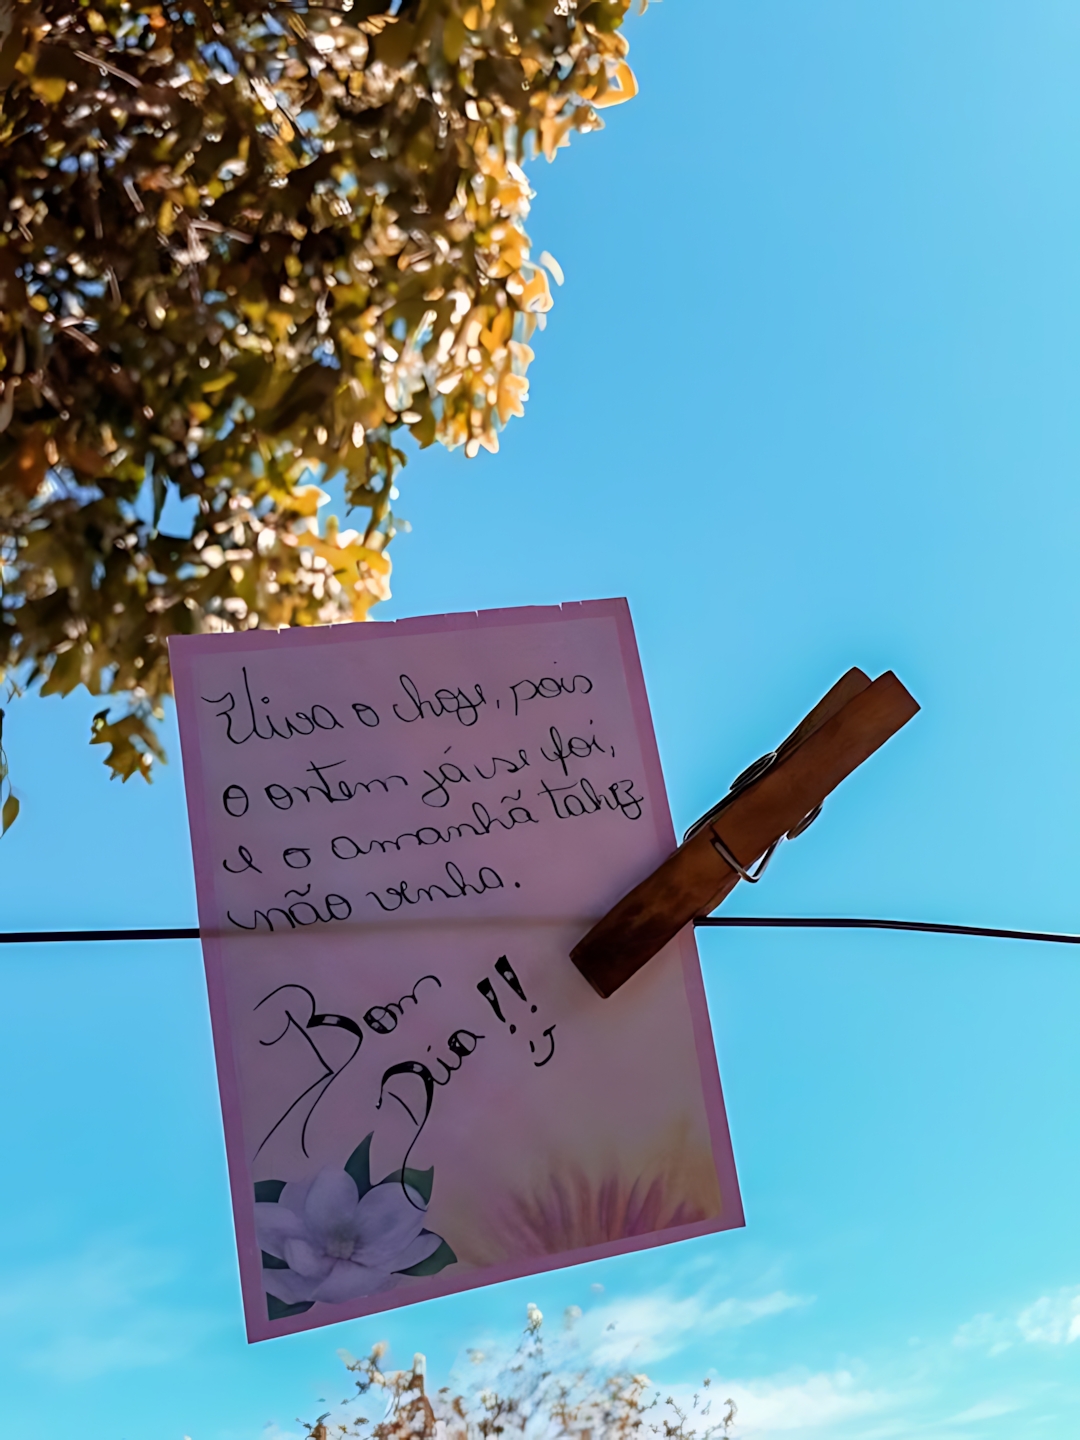 Viva o hoje, pois
o ontem já se foi,
e o amanhã talvez
não venha.
Bom
Dia!! :)